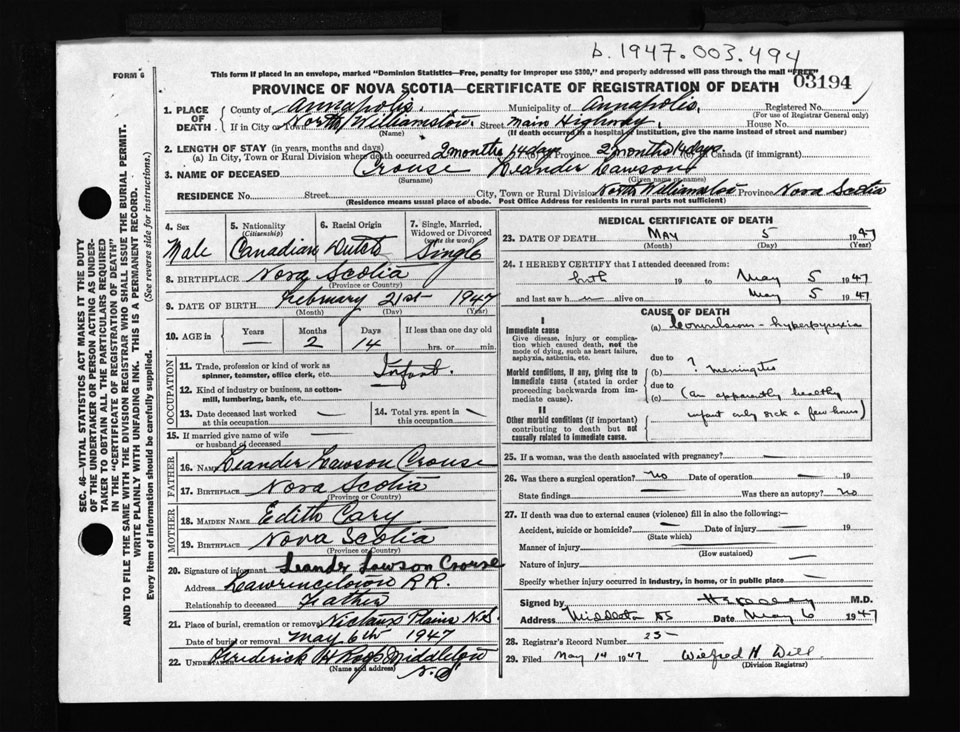 b. 1947.003.494
FORM 6
This form if placed in an envelope, marked "Dominion Statistics—Free, penalty for improper use $300," and properly addressed will pass through the mail "FREE"
03194
PROVINCE OF NOVA SCOTIA—CERTIFICATE OF REGISTRATION OF DEATH
1. PLACE OF DEATH { County of Annapolis. Municipality of Annapolis, Registered No.
(For use of Registrar General only)
If in City or Town North Williamston. Street Main Highway. House No.
(Name) (If death occurred in a hospital or institution, give the name instead of street and number)
2. LENGTH OF STAY (in years, months and days)
(a) In City, Town or Rural Division where death occurred 2 months 14 days Province 2 months 14 days. in Canada (if immigrant)
3. NAME OF DECEASED Crouse Leander Lawson
(Surname) (Given name or names)
RESIDENCE No. Street City, Town or Rural Division North Williamston Province Nova Scotia
(Residence means usual place of abode. Post Office Address for residents in rural parts not sufficient)
SEC. 46—VITAL STATISTICS ACT MAKES IT THE DUTY OF THE UNDERTAKER OR PERSON ACTING AS UNDERTAKER TO OBTAIN ALL THE PARTICULARS REQUIRED IN THE "CERTIFICATE OF REGISTRATION OF DEATH" AND TO FILE THE SAME WITH THE DIVISION REGISTRAR WHO SHALL ISSUE THE BURIAL PERMIT.
WRITE PLAINLY WITH UNFADING INK. THIS IS A PERMANENT RECORD.
Every item of information should be carefully supplied. (See reverse side for instructions.)
4. Sex Male
5. Nationality (Citizenship) Canadian
6. Racial Origin Dutch
7. Single, Married, Widowed or Divorced (write the word) Single
8. BIRTHPLACE Nova Scotia
(Province or Country)
9. DATE OF BIRTH February 21st 1947
(Month) (Day) (Year)
10. AGE in { Years — Months 2 Days 14 If less than one day old hrs. or min.
OCCUPATION
11. Trade, profession or kind of work as spinner, teamster, office clerk, etc. Infant.
12. Kind of industry or business, as cotton-mill, lumbering, bank, etc.
13. Date deceased last worked at this occupation —
14. Total yrs. spent in this occupation
15. If married give name of wife or husband of deceased —
FATHER
16. NAME Leander Lawson Crouse
17. BIRTHPLACE Nova Scotia
(Province or Country)
MOTHER
18. MAIDEN NAME Edith Cary
19. BIRTHPLACE Nova Scotia
(Province or Country)
20. Signature of informant Leander Lawson Crouse
Address Lawrencetown R.R.
Relationship to deceased Father
21. Place of burial, cremation or removal Nictaux Plains N.S.
Date of burial or removal May 6th 1947
22. UNDERTAKER Frederick H Middleton
(Name and address) N.S
MEDICAL CERTIFICATE OF DEATH
23. DATE OF DEATH May 5 1947
(Month) (Day) (Year)
24. I HEREBY CERTIFY that I attended deceased from:
birth 19 to May 5 1947
and last saw h im alive on May 5 1947
CAUSE OF DEATH
I
Immediate cause
Give disease, injury or complication which caused death, not the mode of dying, such as heart failure, asphyxia, asthenia, etc.
(a) Convulsions - hyperpyrexia
due to
Morbid conditions, if any, giving rise to immediate cause (stated in order proceeding backwards from immediate cause).
(b) ? meningitis
due to
(c) (an apparently healthy infant only sick a few hours)
II
Other morbid conditions (if important) contributing to death but not causally related to immediate cause.
25. If a woman, was the death associated with pregnancy? —
26. Was there a surgical operation? No Date of operation — 19
State findings Was there an autopsy? No
27. If death was due to external causes (violence) fill in also the following:—
Accident, suicide or homicide? — Date of injury — 19
(State which)
Manner of injury —
(How sustained)
Nature of injury —
Specify whether injury occurred in industry, in home, or in public place —
Signed by M.D.
Address Middleton NS Date May 6 1947
28. Registrar's Record Number 25-
29. Filed May 14 1947 Wilfred H.
(Division Registrar)